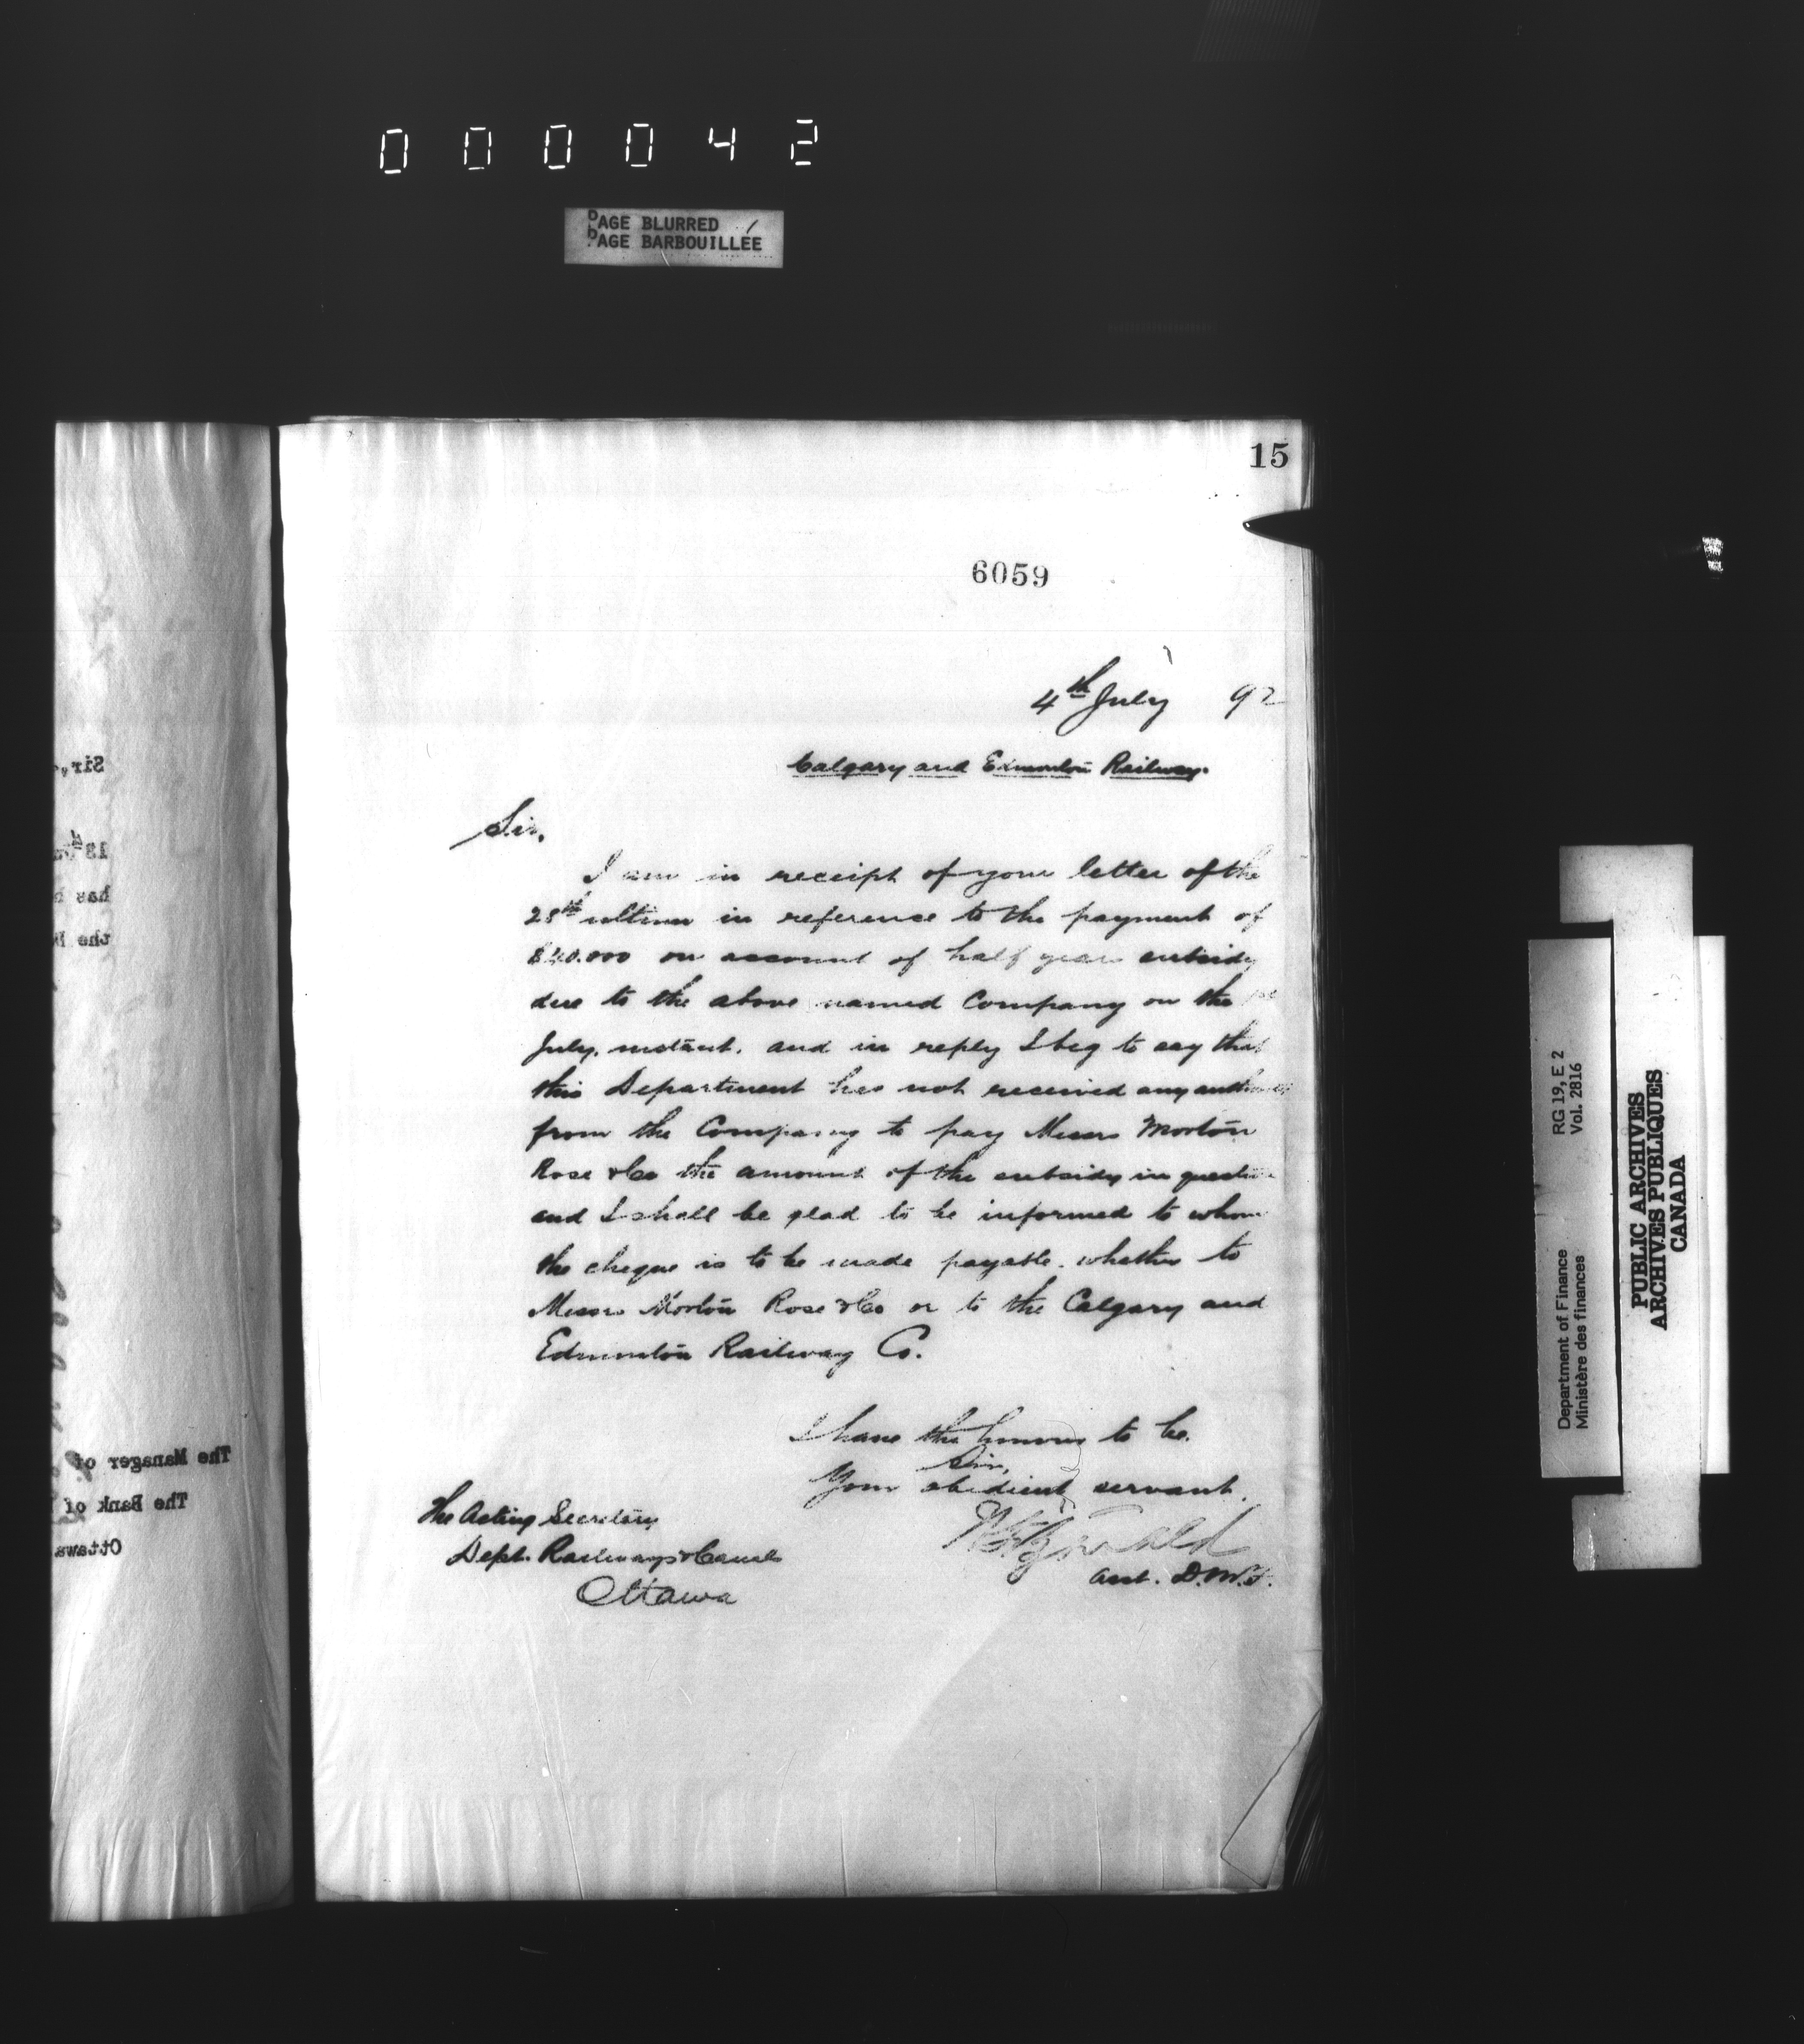 000042
PAGE BLURRED
PAGE BARBOUILLÉE
15
6059
4th July 92
Calgary and Edmonton Railway.
Sir,
I am in receipt of your letter of the
28th ultimo in reference to the payment of
$40.000 on account of half year subsidy
due to the above named Company on the 1st
July, instant, and in reply I beg to say that
this Department has not received any
from the Company to pay Messrs Morton
Rose & Co the amount of the subsidy in question
and I shall be glad to be informed to whom
the cheque is to be made payable. whether to
Messrs Morton Rose & Co or to the Calgary and
Edmonton Railway Co.
I have the honour to be.
Sir,
Your obedient servant.
Asst. D.M.F.
The Acting Secretary
Dept. Railways & Canals
Ottawa
Sir,
has
the
The Manager of
The Bank of
Ottawa
RG 19, E 2
Vol. 2816
Department of Finance
Ministère des finances
PUBLIC ARCHIVES
ARCHIVES PUBLIQUES
CANADA